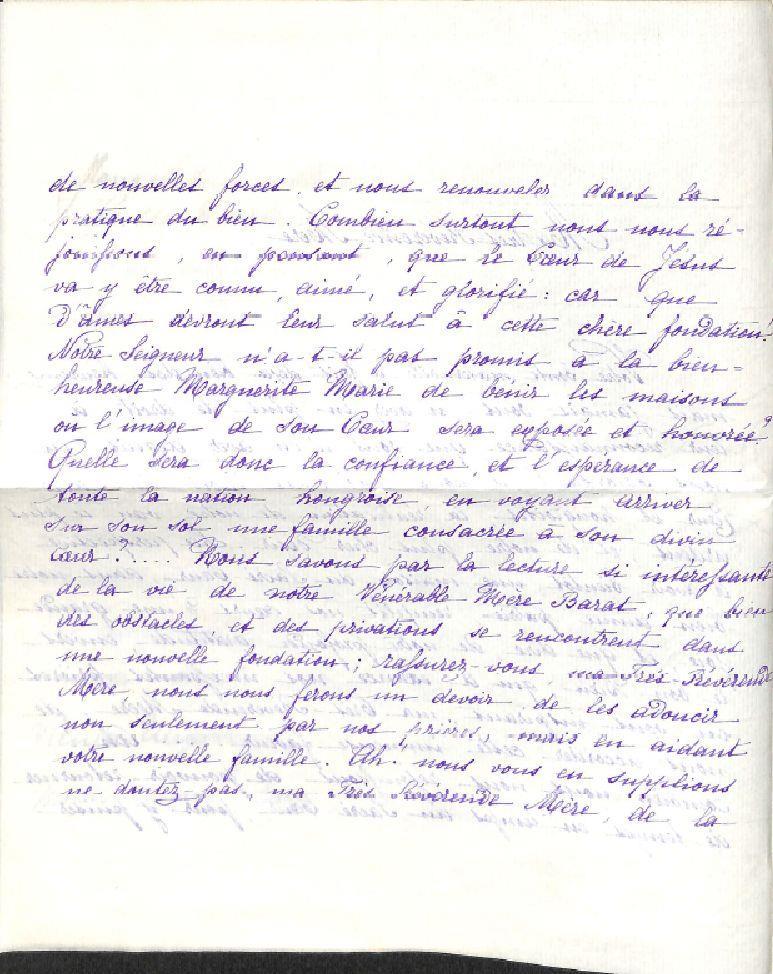 de nouvelles forces, et nous renouveler dans la
pratique du bien. Combien surtout nous nous ré-
jouissons, en pensant, que le Cœur de Jésus
va y être connu, aimé, et glorifié: car que
d'âmes devront leur salut à cette chere fondation!
Notre Seigneur n'a-t-il pas promis à la bien-
heureuse Marguerite Marie de bénir les maisons
ou l'image de son Cœur sera exposée et honorée?
Quelle sera donc la confiance, et l'espérance de
toute la nation hongroise, en voyant arriver
sur son sol une famille consacrée à son divin
Cœur?.... Nous savons par la lecture si intéressante
de la vie de notre Vénérable Mère Barat, que bien
des obstacles, et des privations se rencontrent dans
une nouvelle fondation; rassurez-vous, ma Très Révérende
Mère, nous nous ferons un devoir de les adoucir
non seulement par nos prières, mais en aidant
votre nouvelle famille. Ah. nous vous en supplions
ne doutez-pas, ma Très Révérende Mère, de la